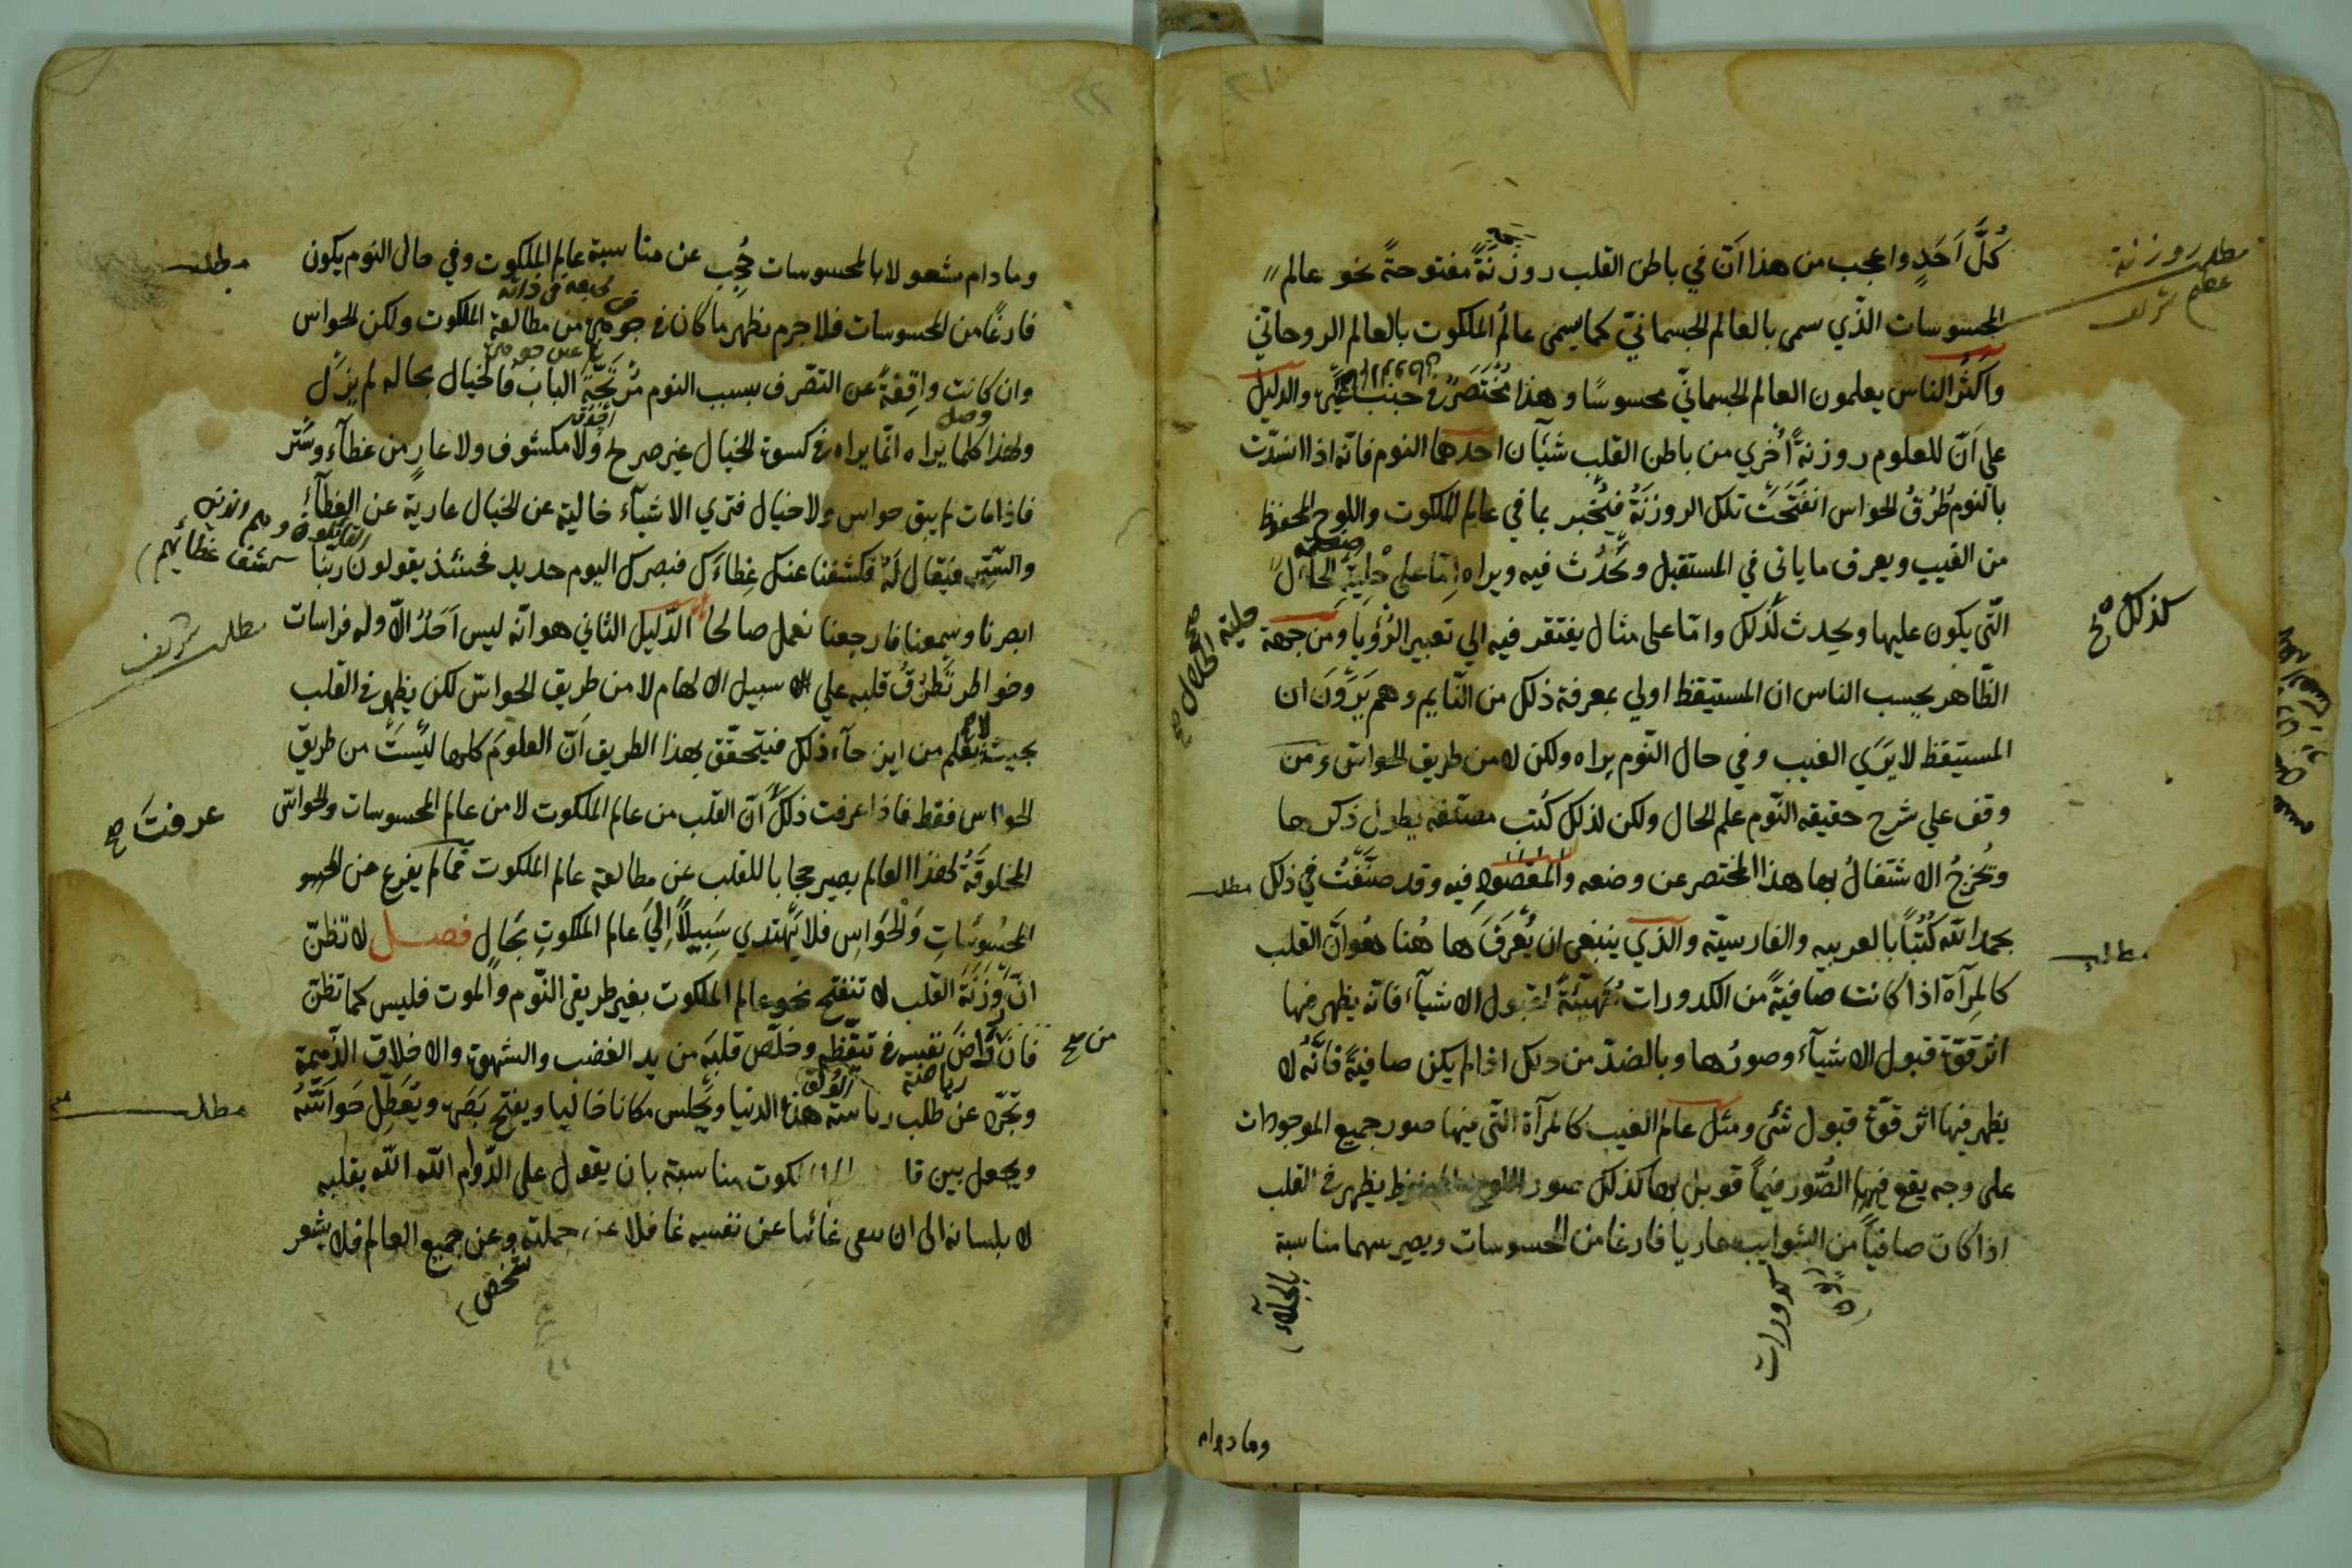 كُلَّ اَحَدٍ واعجب من هذا اَنّ في باطن القلب روزَنَةً مفتوحةً نحو عالم
المحسوسات الّذي سمى بالعالم الجسمانيّ كما يسمى عالمُ الملكوت بالعالم الروحانيّ
واَكثُر الناس يعلمون العالم الجسمانيّ محسوسًا وهذا مُخْتَصَرٌ في جنب والدليل
على اَنّ للعلوم روزنةً اُخري من باطن القلب شيآن احدهما النوم فانّه اذا انسدّت
بالنوم طُرُقُ الحواس انفَتَحَتْ تلك الروزَنَةُ فيُخبر بما في عالم الملكوت واللوح المحفوظ
من الغيب ويعرف ما ياتي في المستقبل ويَحْدُث فيه ويراه اِمّا على حِلْيَةِ الحال
الّتي يكون عليها ويحدث كذلك وامّا على مثال يفتقر فيه الي تعبير الرُؤيا ومن جهة
الظّاهر يحسب الناس ان المستيقظ اولي بمعرفة ذلك من النّايم وهم يَرَوْنَ ان
المستيقظ لا يَرَي الغيب وفي حال النّوم يراه ولكن لا من طريق الحواسّ ومن
وقف علي شرح حقيقه النّوم علم الحال ولكن لذلك كُتب مصنّفه يطول ذكرها
وتُخرجُ الاشتغالُ بها هذا المختصر عن وضعه والمقصود فيه وقد صَنَّفتُ في ذلك
بحمد الله كُتُبًا بالعربيه والفارسيّه والّذي ينبغي ان يُعرَفَ ها هُنا هُو اَنَّ القلب
كالمِرآة اذا كانت صافيةً من الكدورات مُتَهيّئَةً لقبول الاشيآء فانّه يظهر فيها
اثر قوّة قبول الاشيآء وصورُها وبالضدّ من ذلك اذا لم يكن صافيةً فانّه لا
يظهر فيها اثر قوّة قبول شئ ومثل عالم الغيب كالمرآة الّتي فيها صور جميع الموجودات
على وجه يقع فيها الصُّوَر فيما قوبل بها كذلك صور اللوح المحفوظ يظهر في القلب
اذا كان صافيًا من الشوايب عاريا فارغا من المحسوسات ويصير بينهما مناسبة
مطلب روزنة
عظيم شريف
كذلك صح
حلية الحال صح
مطلب
مطلب
كدورات
وما دام
وما دام مشغولا بالمحسوسات حُجِبَ عن مناسبة عالم الملكوت وفي حال النوم يكون
فارغًا من المحسوسات فلا جرم يظهر ما كان في جوهره من مطالعة الملكوت ولكن الحواس
وان كانت واقِفةً عن التصّرف بسبب النوم مُرْتَجَّةَ الباب فالخيال بحاله لم يزَل
ولهذا كلما يراه انّما يراه في كسوة الخيال غير صريح ولا مكشوف ولا عارٍ من غطآء وسَتر
فاذا مات لم يبق حواس ولا خيال فترى الاشيآء خالية عن الخيال عارية عن الغطآء
والسّتر فيُقال لَهُ فكشفنا عنك غِطاءَك فبصرك اليوم حديد فحينئذ يقولون ربّنا
ابصرنا وسمعنا فارجعنا نعمل صالحا الدّليل الثاني هو انّه ليس اَحَدٌ الّا وله فراسات
وخواطر تَطرُقُ قلبه علي سبيل الالهام لا من طريق الحواسّ لكن يظهر في القلب
بحيث لا يَعلم من اين جآء ذلك فيتحقّق بهذا الطريق اَنّ العلومَ كلها ليسَتْ من طريق
الحواس فقط فاذا عرفت ذلك اَنّ القلب من عالم الملكوت لا من عالم المحسوسات والحواسّ
المخلوقَةُ لهذا العالم يصير حجابا للقلب عن مطالعة عالم الملكوت فما لم يفرغ عن
المحسُوسَاتِ وَالْحَوَاسِ فلا يَهْتَدي سَبِيلًا اِليَ عَالم الملكوتِ بحَالٍ فصـــل لا تظنّ
انّ رَوزَنَةَ القلب لا تنفتح نحو عالم الملكوت بغير طريق النّوم والموت فليس كما تظنّ
فان رَاضَ نفسه في تيقّظه وخلّص قلبَه من يد الغضب والشهوة والاخلاق الذّميمة
وتجرّد عن طلب رياسة هذه الدنيا ويَجلس مكانا خاليا ويفتح بَصَره ويُعَطِّل حَواسَّهُ
ويجعل بين مناسبة بان يقول على الدّوام اللّه اللّه بقلبه
لا بلسانه الى ان يبقى غائبا عن نفسه غافلا عن جملته وعن جميع العالم فلا يشعر
مطلب
كشف غطائهم
مطلب شريف
عرفتَ صح
من صح
رياضة
مطلب
شخص